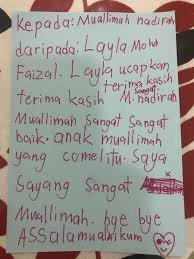 kepada: Muallimah nadirah
daripada: Layla Mohd
Faizal. Layla ucapkan
terima kasih
terima kasih sangat M. nadirah
Muallimah Sangat Sangat
baik. anak muallimah
yang comel itu. Saya
Sayang Sangat
Muallimah. bye bye
ASSalamualaikum